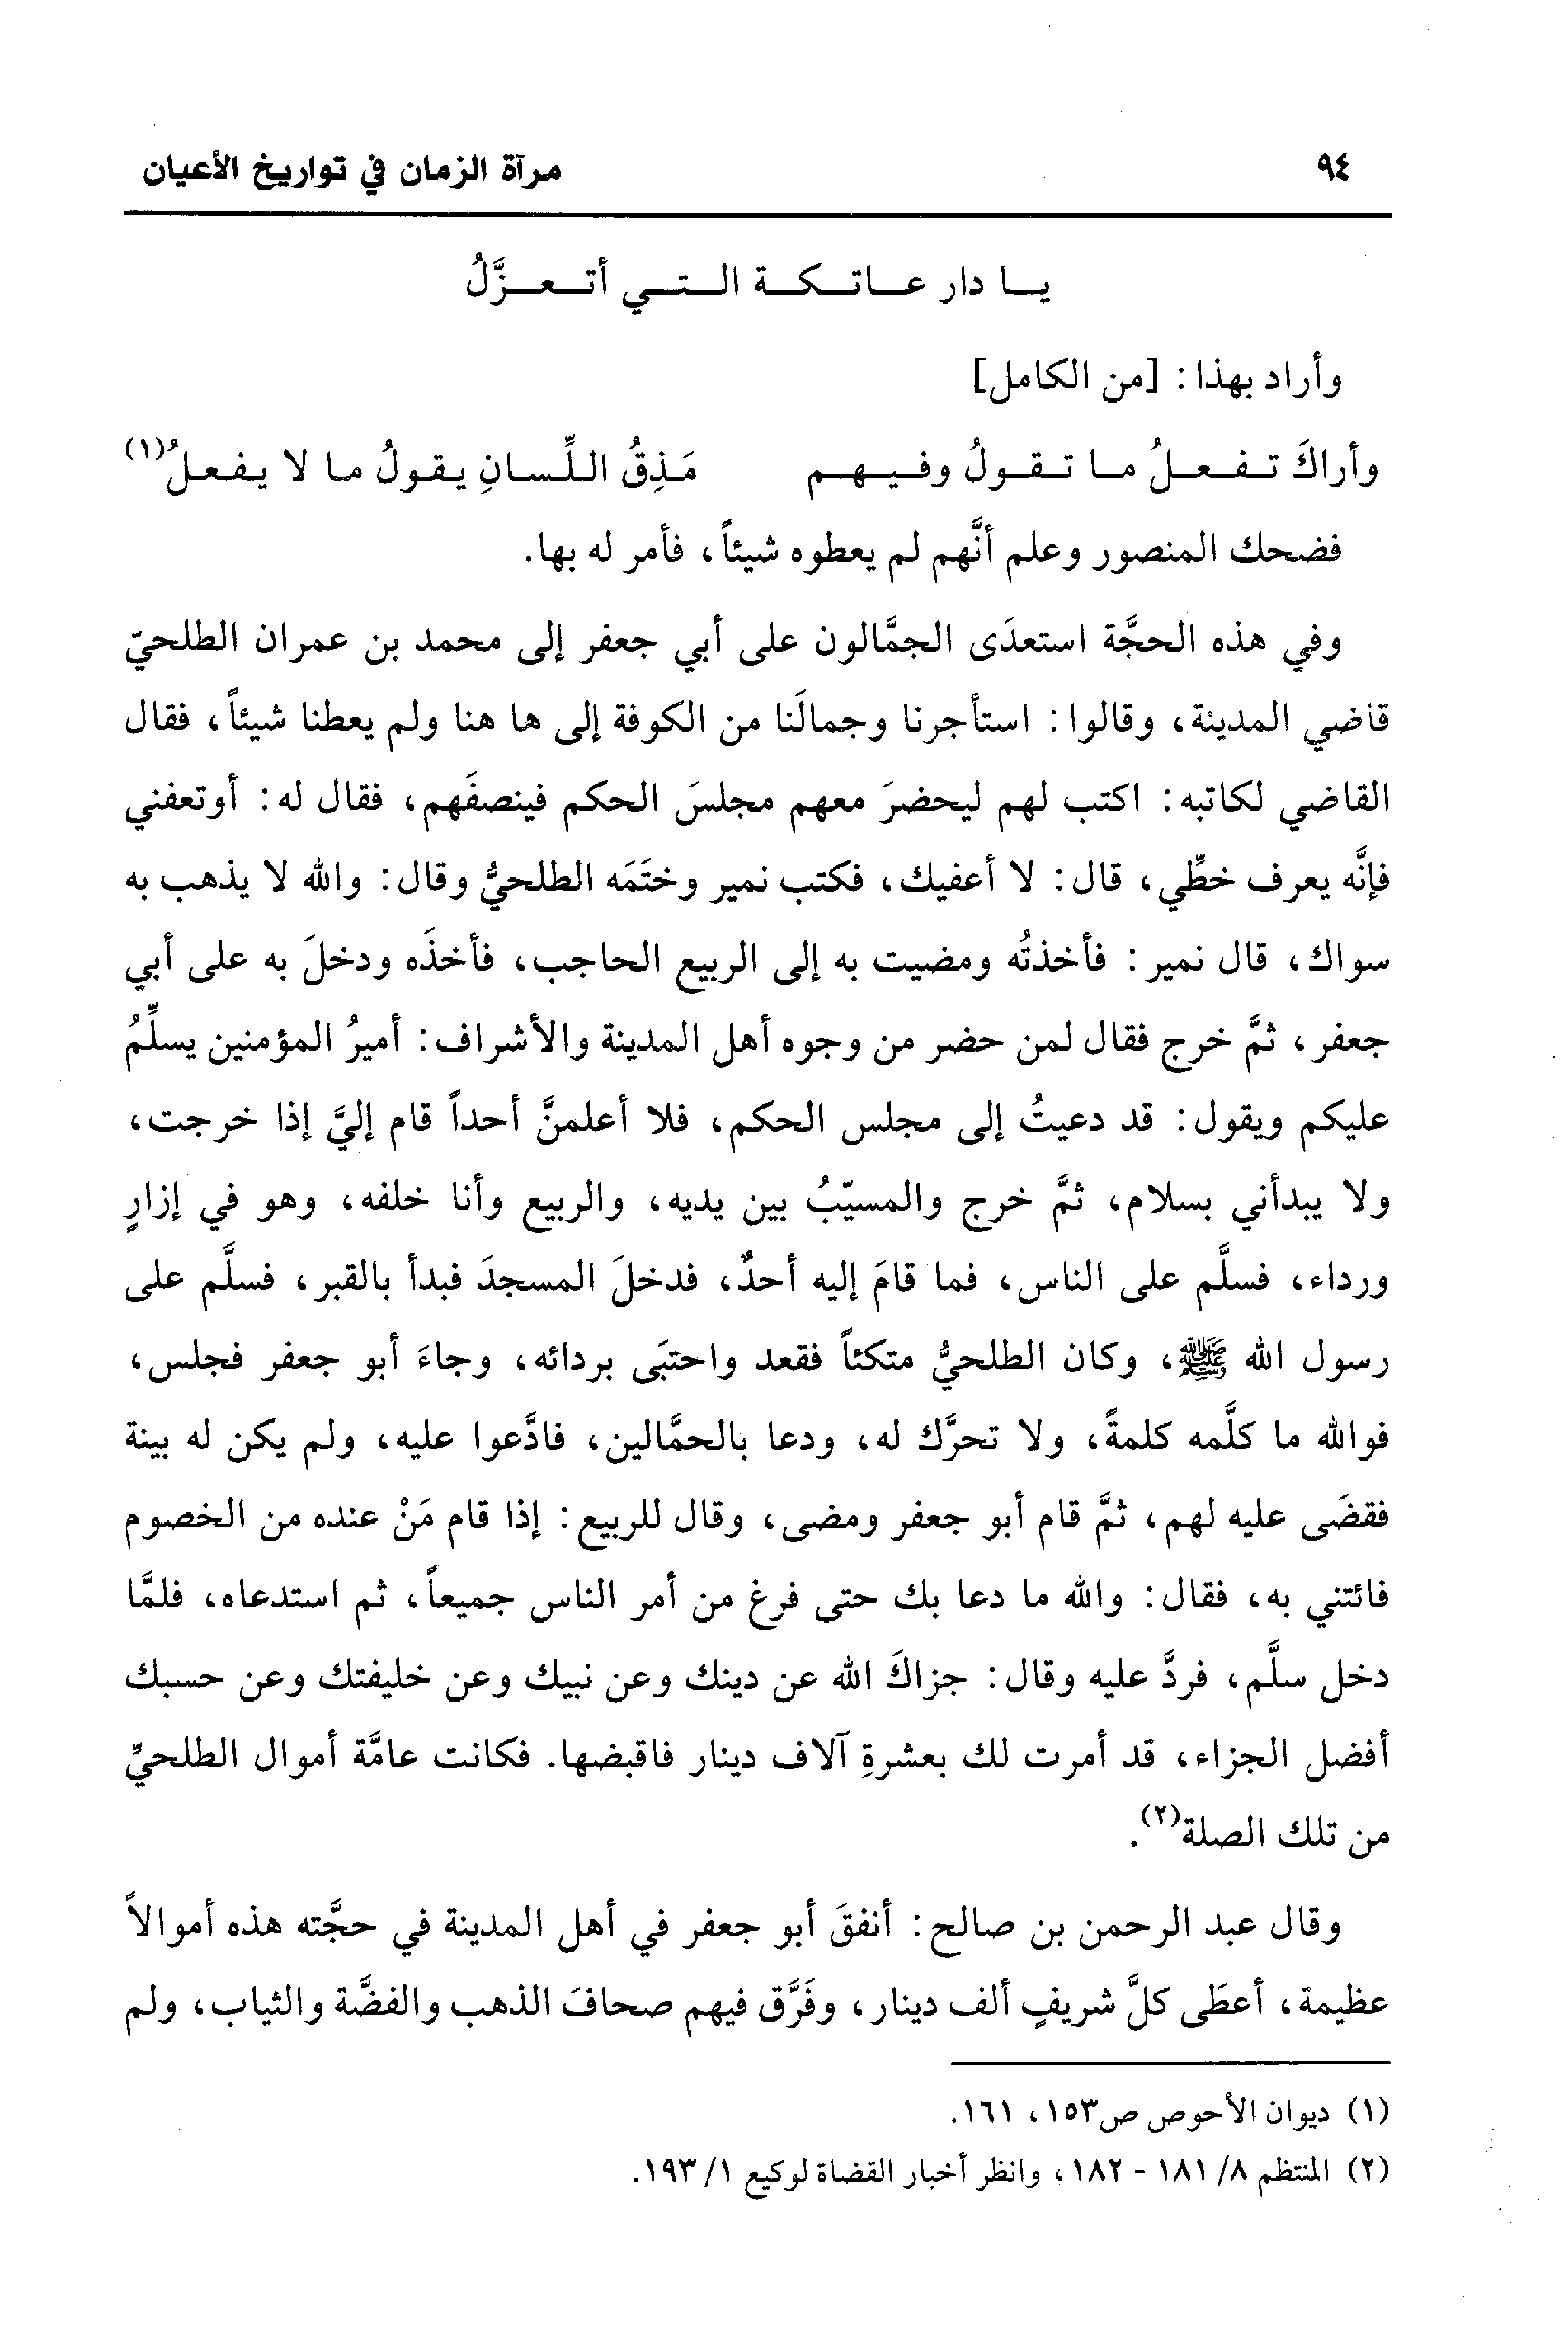 ٩٤ مرآة الزمان في تواريخ الأعيان
يا دار عاتكة التي أتعزَّلُ
وأراد بهذا: [من الكامل]
وأراكَ تفعلُ ما تقولُ وفيهم مَذِقُ اللِّسانِ يقولُ ما لا يفعلُ(١)
فضحك المنصور وعلم أنَّهم لم يعطوه شيئاً، فأمر له بها.
وفي هذه الحجَّة استعدَى الجمَّالون على أبي جعفر إلى محمد بن عمران الطلحيّ
قاضي المدينة، وقالوا: استأجرنا وجمالَنا من الكوفة إلى ها هنا ولم يعطنا شيئاً، فقال
القاضي لكاتبه: اكتب لهم ليحضرَ معهم مجلسَ الحكم فينصفَهم، فقال له: أوتعفني
فإنَّه يعرف خطِّي، قال: لا أعفيك، فكتب نمير وختَمَه الطلحيُّ وقال: والله لا يذهب به
سواك، قال نمير: فأخذتُه ومضيت به إلى الربيع الحاجب، فأخذَه ودخلَ به على أبي
جعفر، ثمَّ خرج فقال لمن حضر من وجوه أهل المدينة والأشراف: أميرُ المؤمنين يسلِّمُ
عليكم ويقول: قد دعيتُ إلى مجلس الحكم، فلا أعلمنَّ أحداً قام إليَّ إذا خرجت،
ولا يبدأني بسلام، ثمَّ خرج والمسيّبُ بين يديه، والربيع وأنا خلفه، وهو في إزارٍ
ورداء، فسلَّم على الناس، فما قامَ إليه أحدٌ، فدخلَ المسجدَ فبدأ بالقبر، فسلَّم على
رسول الله ﷺ، وكان الطلحيُّ متكئاً فقعد واحتبَى بردائه، وجاءَ أبو جعفر فجلس،
فوالله ما كلَّمه كلمةً، ولا تحرَّك له، ودعا بالحمَّالين، فادَّعوا عليه، ولم يكن له بينة
فقضَى عليه لهم، ثمَّ قام أبو جعفر ومضى، وقال للربيع: إذا قام مَنْ عنده من الخصوم
فائتني به، فقال: والله ما دعا بك حتى فرغ من أمر الناس جميعاً، ثم استدعاه، فلمَّا
دخل سلَّم، فردَّ عليه وقال: جزاكَ الله عن دينك وعن نبيك وعن خليفتك وعن حسبك
أفضل الجزاء، قد أمرت لك بعشرةِ آلاف دينار فاقبضها. فكانت عامَّة أموال الطلحيِّ
من تلك الصلة(٢).
وقال عبد الرحمن بن صالح: أنفقَ أبو جعفر في أهل المدينة في حجَّته هذه أموالاً
عظيمة، أعطَى كلَّ شريفٍ ألف دينار، وفَرَّق فيهم صحافَ الذهب والفضَّة والثياب، ولم
(١) ديوان الأحوص ص١٥٣، ١٦١.
(٢) المنتظم ٨/ ١٨١ - ١٨٢، وانظر أخبار القضاة لوكيع ١/ ١٩٣.